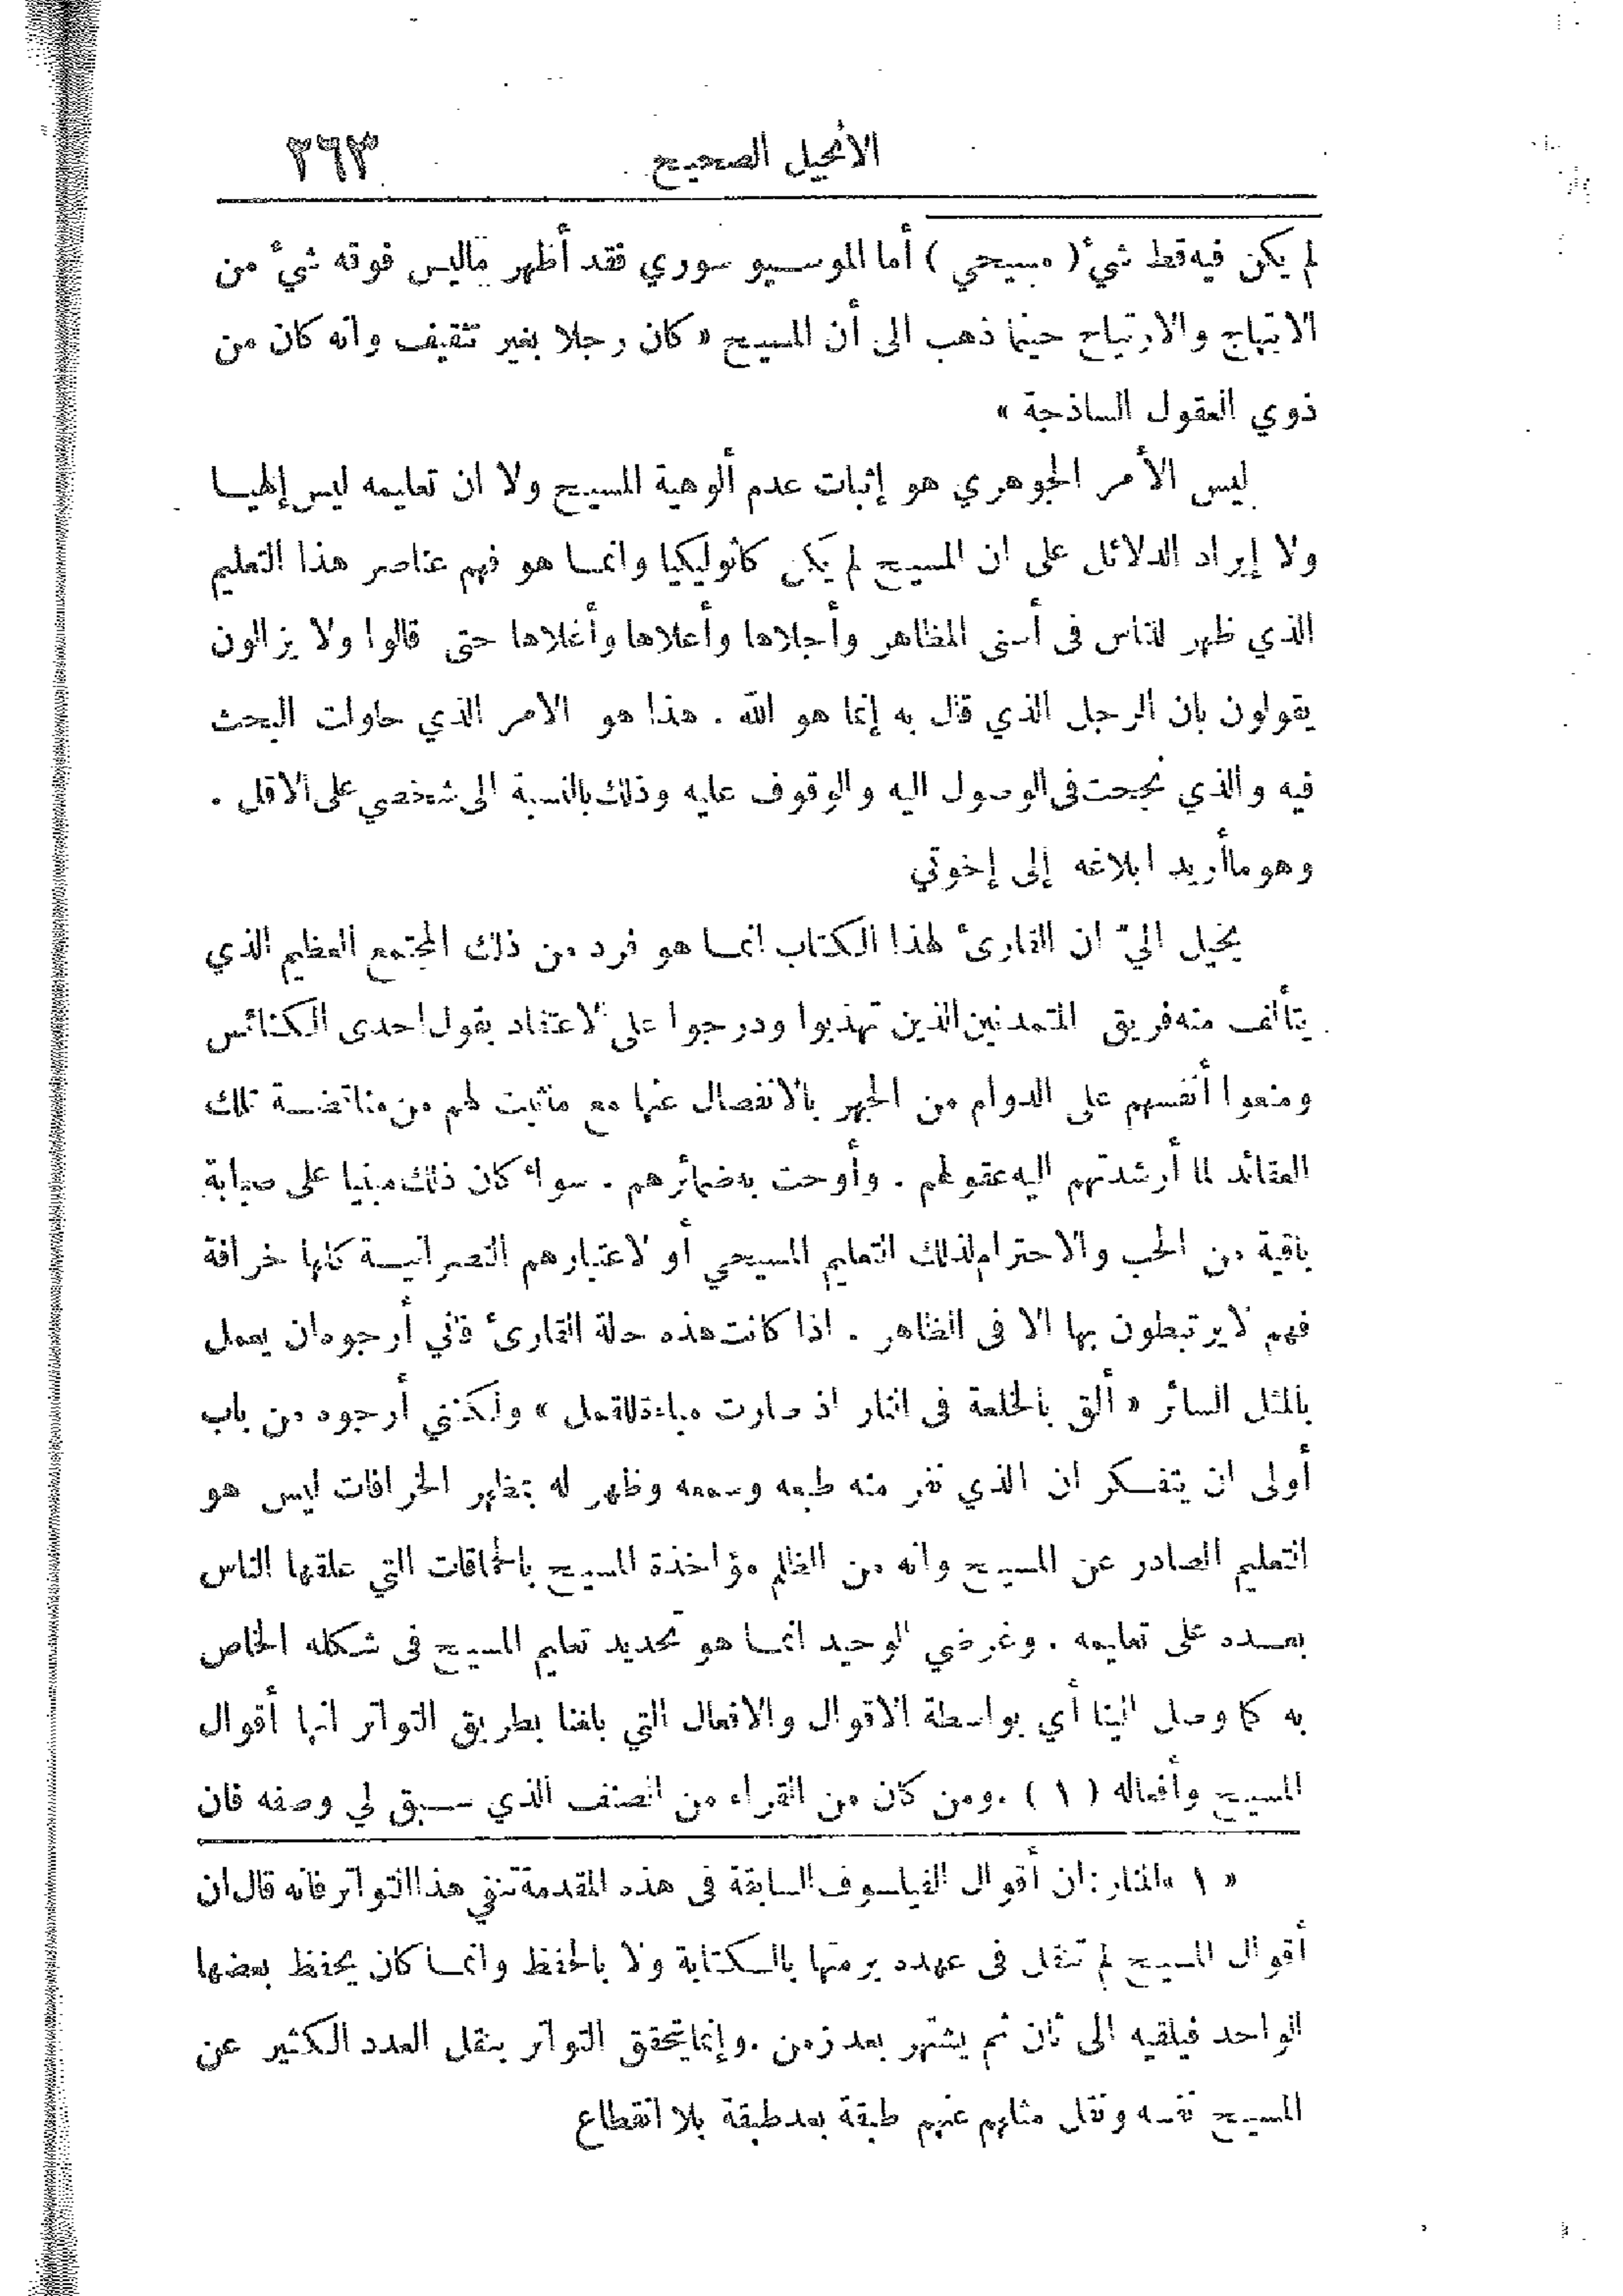 الانجيل الصحيح ٢٦٣
لم يكن فيه قط شيء ( مسيحي ) أما الموسيو سوري فقد أظهر ماليس فوقه شيء من
الابتهاج والارتياح حينما ذهب الى أن المسيح « كان رجلا بغير تثقيف وانه كان من
ذوي العقول الساذجة »
ليس الأمر الجوهري هو إثبات عدم ألوهية المسيح ولا ان تعليمه ليس إلهيا
ولا إيراد الدلائل على ان المسيح لم يكن كاثوليكيا وانما هو فهم عناصر هذا التعليم
الذي ظهر للناس فى أسنى المظاهر وأجلاها وأعلاها وأغلاها حتى قالوا ولا يزالون
يقولون بان الرجل الذي قال به إنما هو الله . هذا هو الامر الذي حاولت البحث
فيه والذي نجحت فى الوصول اليه والوقوف عليه وذلك بالنسبة الى شخصي على الاقل .
وهو ما أريد ابلاغه إلى إخوتي
يخيل اليّ ان القارئ لهذا الكتاب انما هو فرد من ذلك المجتمع العظيم الذي
يتألف منه فريق المتمدنين الذين تهذبوا ودرجوا على الاعتقاد بقول احدى الكنائس
ومنعوا أنفسهم على الدوام من الجهر بالانفصال عنها مع ماثبت لهم من مناقضة تلك
العقائد لما أرشدتهم اليه عقولهم . وأوحت به ضمائرهم . سواء كان ذلك مبنيا على صبابة
باقية من الحب والاحترام لذلك التعليم المسيحي أو لاعتبارهم النصرانية كلها خرافة
فهم لا يرتبطون بها الا فى الظاهر . اذا كانت هذه حالة القارئ فاني أرجوه ان يعمل
بالمثل السائر « ألق بالخلعة فى النار اذ صارت مباءة للقمل » ولكنني أرجوه من باب
أولى ان يتفكر ان الذي نفر منه طبعه وسمعه وظهر له بمظهر الخرافات ليس هو
التعليم الصادر عن المسيح وانه من الظلم مؤاخذة المسيح بالحماقات التي علقها الناس
بعده على تعاليمه . وغرضي الوحيد انما هو تحديد تعليم المسيح فى شكله الخاص
به كما وصل الينا أي بواسطة الاقوال والافعال التي بلغنا بطريق التواتر انها أقوال
المسيح وأفعاله ( ١ ) . ومن كان من القراء من الصنف الذي سبق لي وصفه فان
« ١ » المنار : ان أقوال الفيلسوف السابقة فى هذه المقدمة تنفي هذا التواتر فانه قال ان
أقوال المسيح لم تنقل فى عهده برمتها بالكتابة ولا بالحفظ وانما كان يحفظ بعضها
الواحد فيلقيه الى ثان ثم يشتهر بعد زمن . وإنما يتحقق التواتر بنقل العدد الكثير عن
المسيح نفسه ونقل مثلهم عنهم طبقة بعد طبقة بلا انقطاع